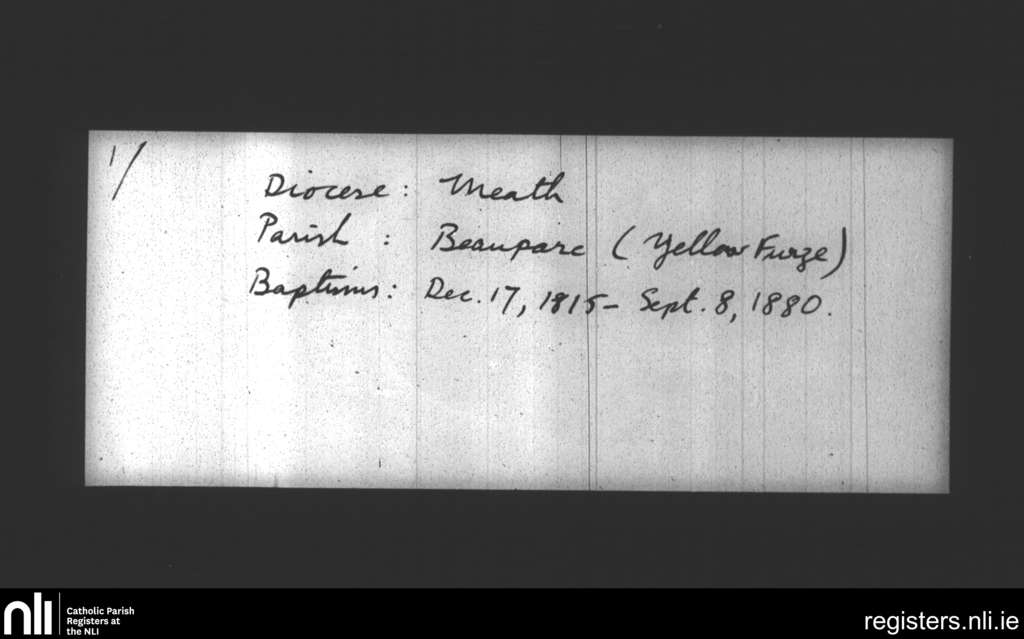 1/
Diocese: Meath
Parish : Beauparc (Yellow Furze)
Baptisms: Dec. 17, 1815- Sept. 8, 1880.
nli
Catholic Parish
Registers at
the NLI
registers.nli.ie